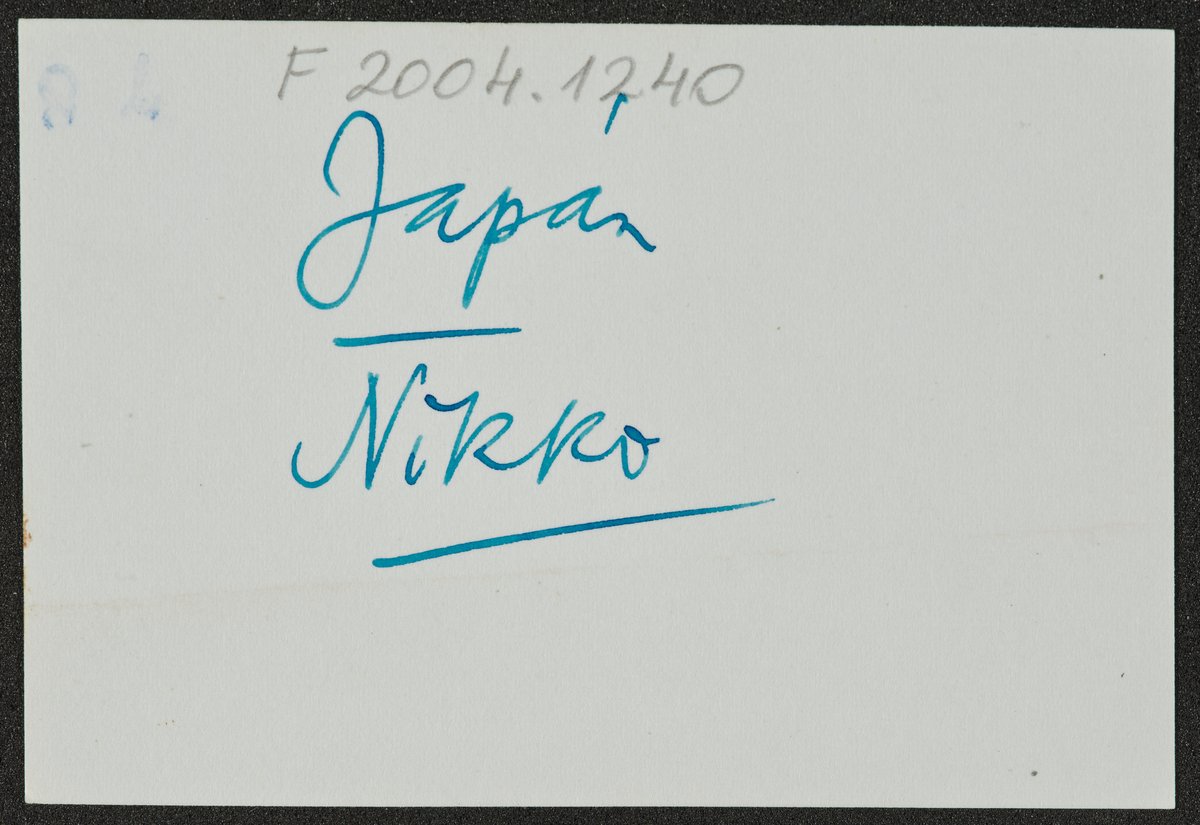 F 2004.1240
Japán
Nikko